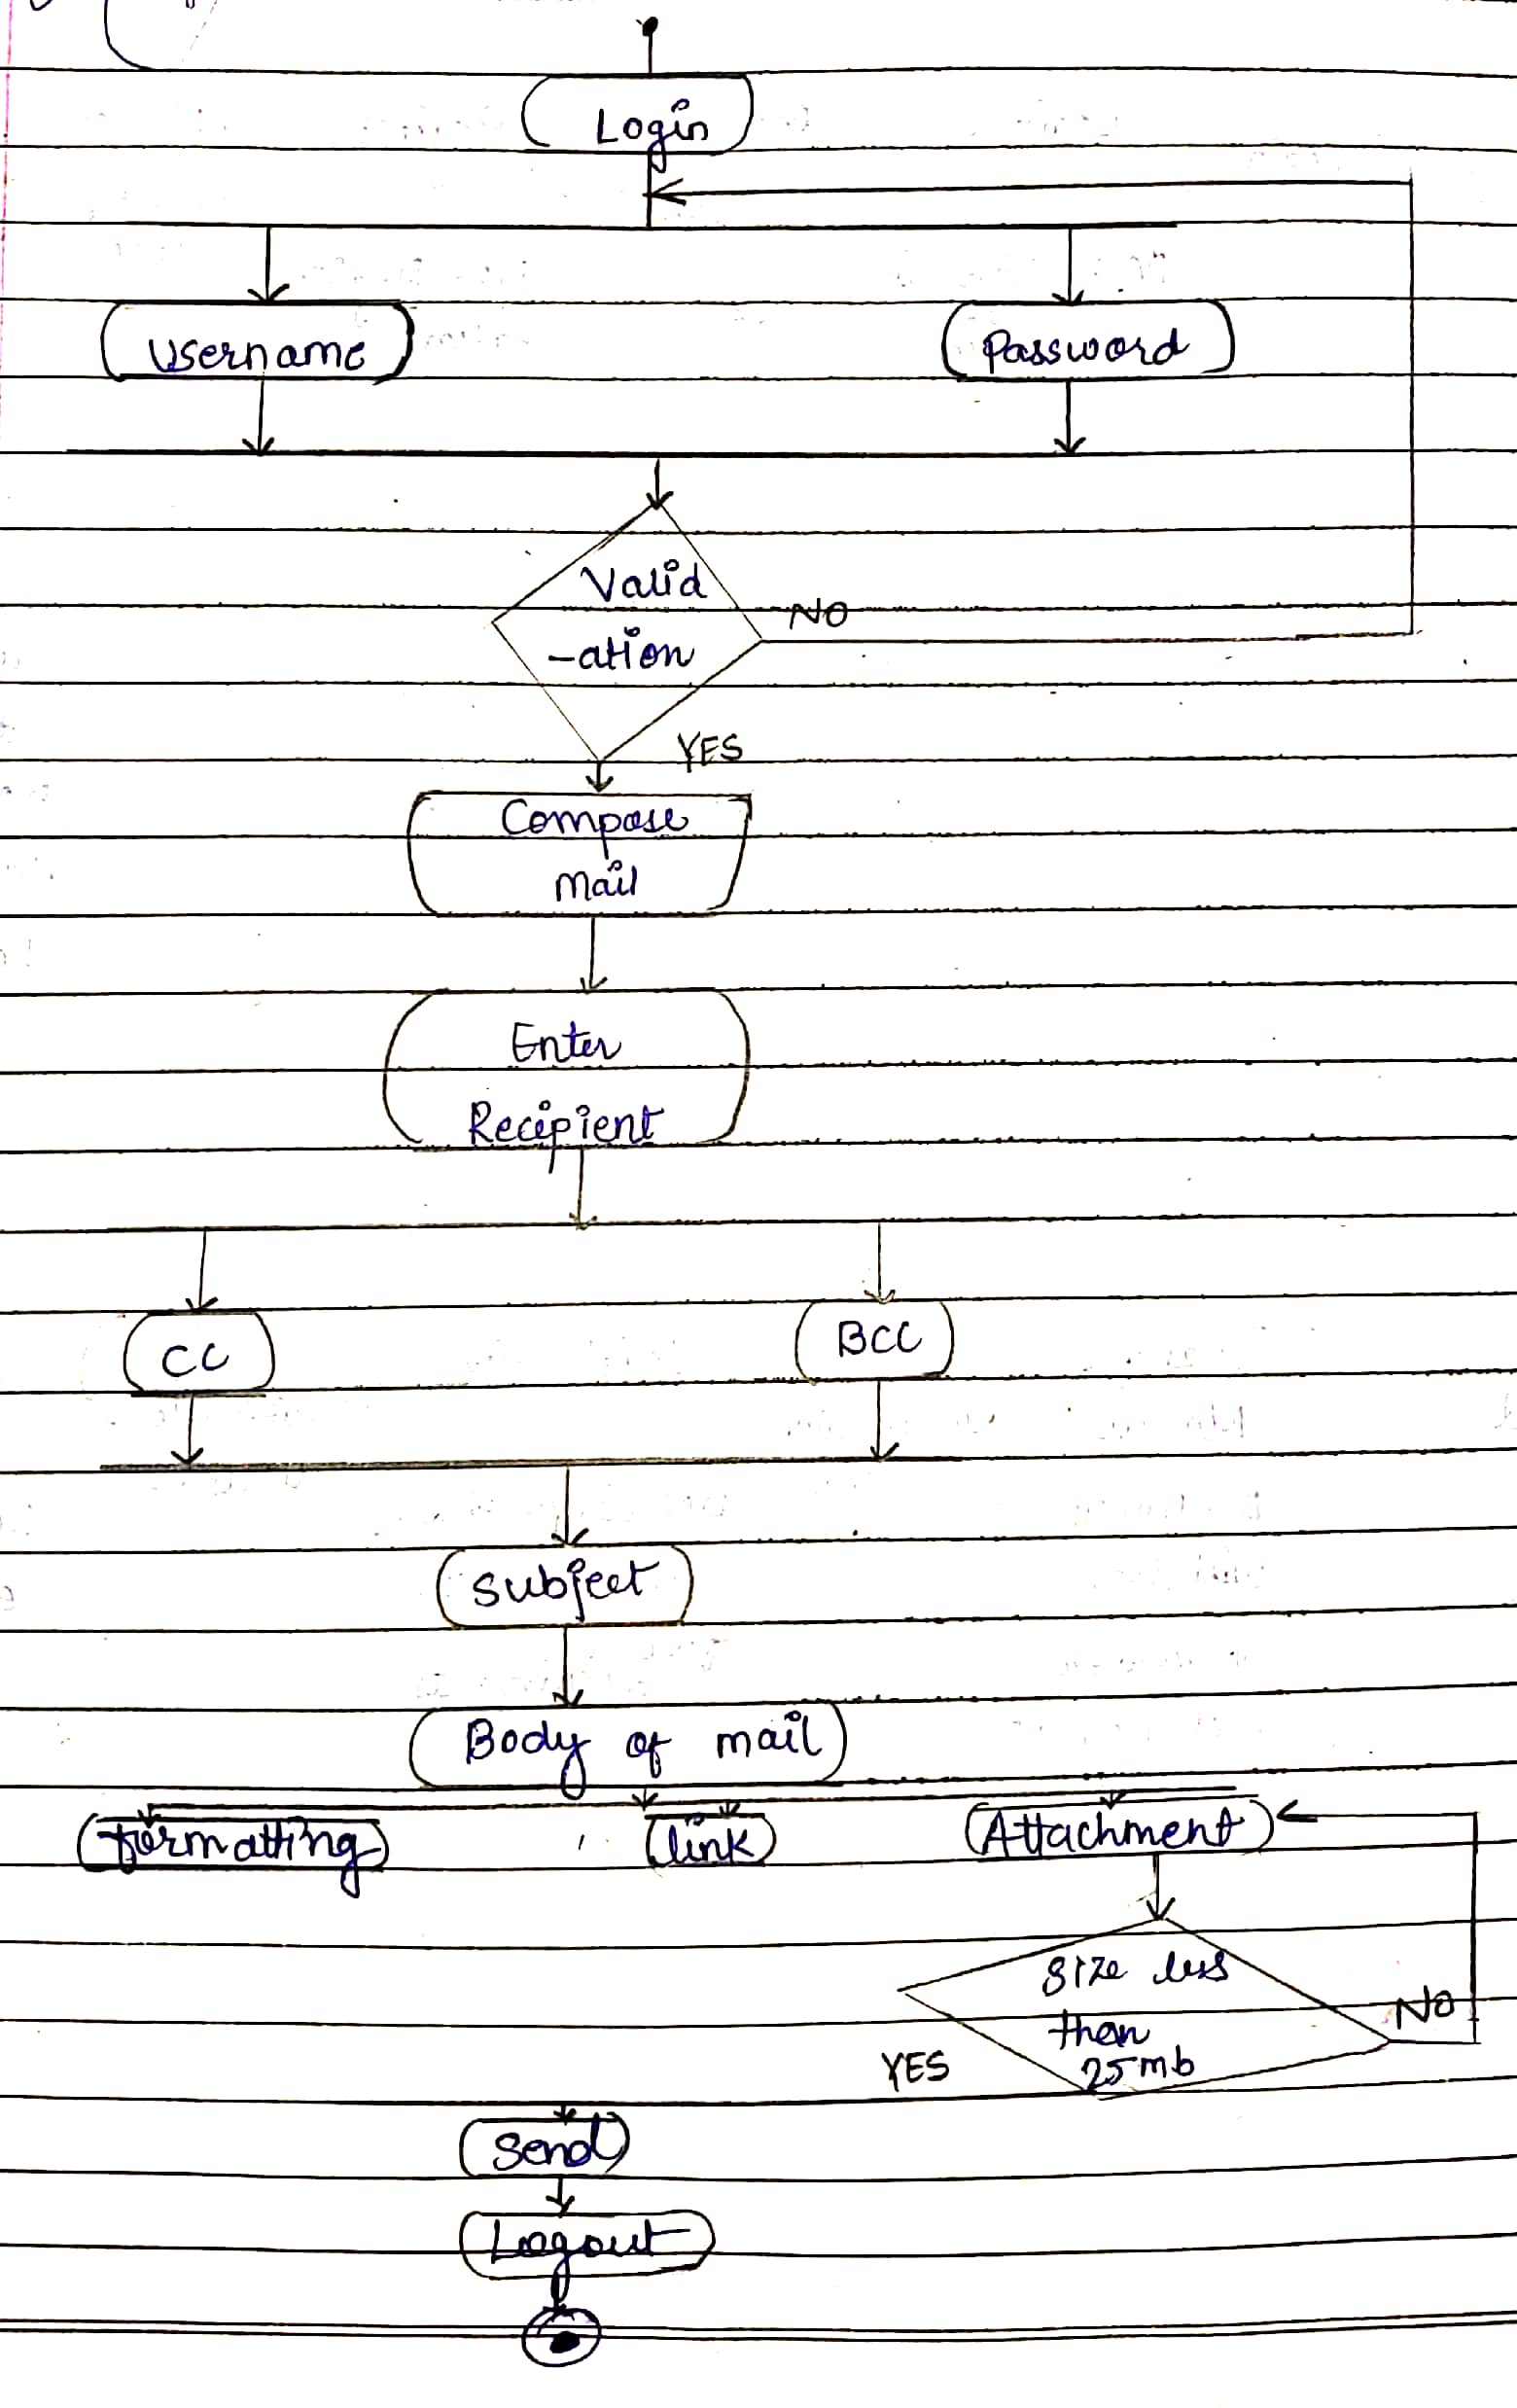 Login
Username
Password
Valid
-ation
NO
YES
Compose
Mail
Enter
Recipient
CC
BCC
Subject
Body of mail
formatting
link
Attachment
Size less
then
25mb
NO
YES
Send
Logout